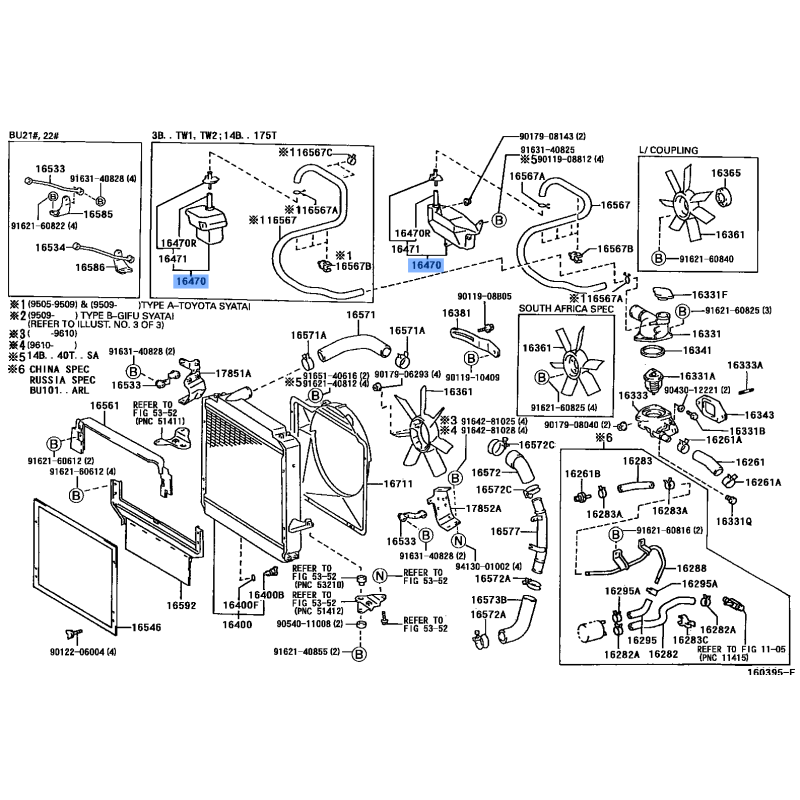 BU21#, 22#
16533
91631-40828 (4)
B
B
16585
91621-60822 (4)
16534
16586
3B.. TW1, TW2; 14B.. 175T
※116567C
※116567A
※116567
16470R
16471
16470
※1
16567B
90179-08143 (2)
91631-40825
※5 90119-08812 (4)
16567A
16567
B
16470R
16471
16470
16567B
※116567A
L/ COUPLING
16365
16361
B 91621-60840
※1 (9505-9509) & (9509- )TYPE A-TOYOTA SYATAI
※2 (9509- ) TYPE B-GIFU SYATAI
(REFER TO ILLUST. NO. 3 OF 3)
※3 ( -9610)
※4 (9610- )
※5 14B.. 40T.. SA
※6 CHINA SPEC
RUSSIA SPEC
BU101.. ARL
91631-40828 (2)
B
16533
17851A
REFER TO
FIG 53-52
(PNC 51411)
16571
16571A
16571A
91651-40616 (2)
※5 91621-40812 (4)
B
90179-06293 (4)
16361
90119-08B05
16381
B
90119-10409
SOUTH AFRICA SPEC
16361
B
91621-60825 (4)
16331F
B
91621-60825 (3)
16331
16341
16331A
16333A
90430-12221 (2)
16333
16343
16331B
90179-08040 (2)
16261A
16261
16261A
16331Q
16561
B
91621-60612 (2)
91621-60612 (4)
B
16592
16546
90122-06004 (4)
16711
※3 91642-81025 (4)
※4 91642-81028 (4)
B
16572C
16572
16572C
17852A
16577
16533
B
N
91631-40828 (2)
94130-01002 (4)
16572A
16573B
16572A
REFER TO
FIG 53-52
(PNC 53210)
REFER TO
FIG 53-52
(PNC 51412)
N
REFER TO
FIG 53-52
REFER TO
FIG 53-52
16400B
16400F
16400
90540-11008 (2)
91621-40855 (2)
B
※6
16261B
16283
16283A
16283A
B
91621-60816 (2)
16288
16295A
16295A
16295
16282A
16282
16282A
16283C
REFER TO FIG 11-05
(PNC 11415)
160395-F